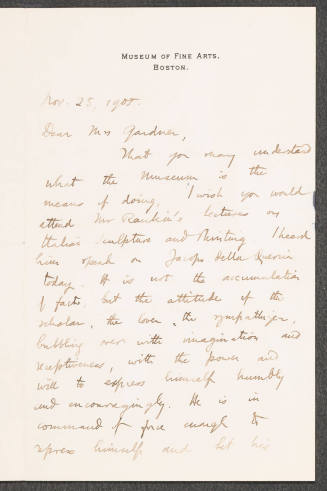 MUSEUM OF FINE ARTS.
BOSTON.
Nov. 25, 1905.
Dear Mrs Gardner,
That you may understand
what the museum is the
means of doing, I wish you would
attend Mr Rankin's lectures on
Italian Sculpture and Painting. I heard
him speak on Jacopo Della Quercia
today. It is not the accumulation
of facts, but the attitude of the
scholar, the lover, the sympathizer,
bubbling over with imagination and
receptiveness, with the power and
will to express himself humbly
and encouragingly. He is in
command of force enough to
express himself and let his